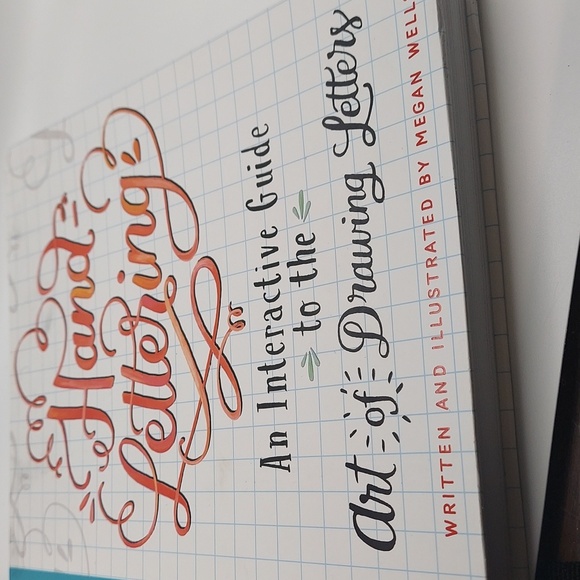 Hand
Lettering
An Interactive Guide
to the
Art of Drawing Letters
WRITTEN AND ILLUSTRATED BY MEGAN WELL